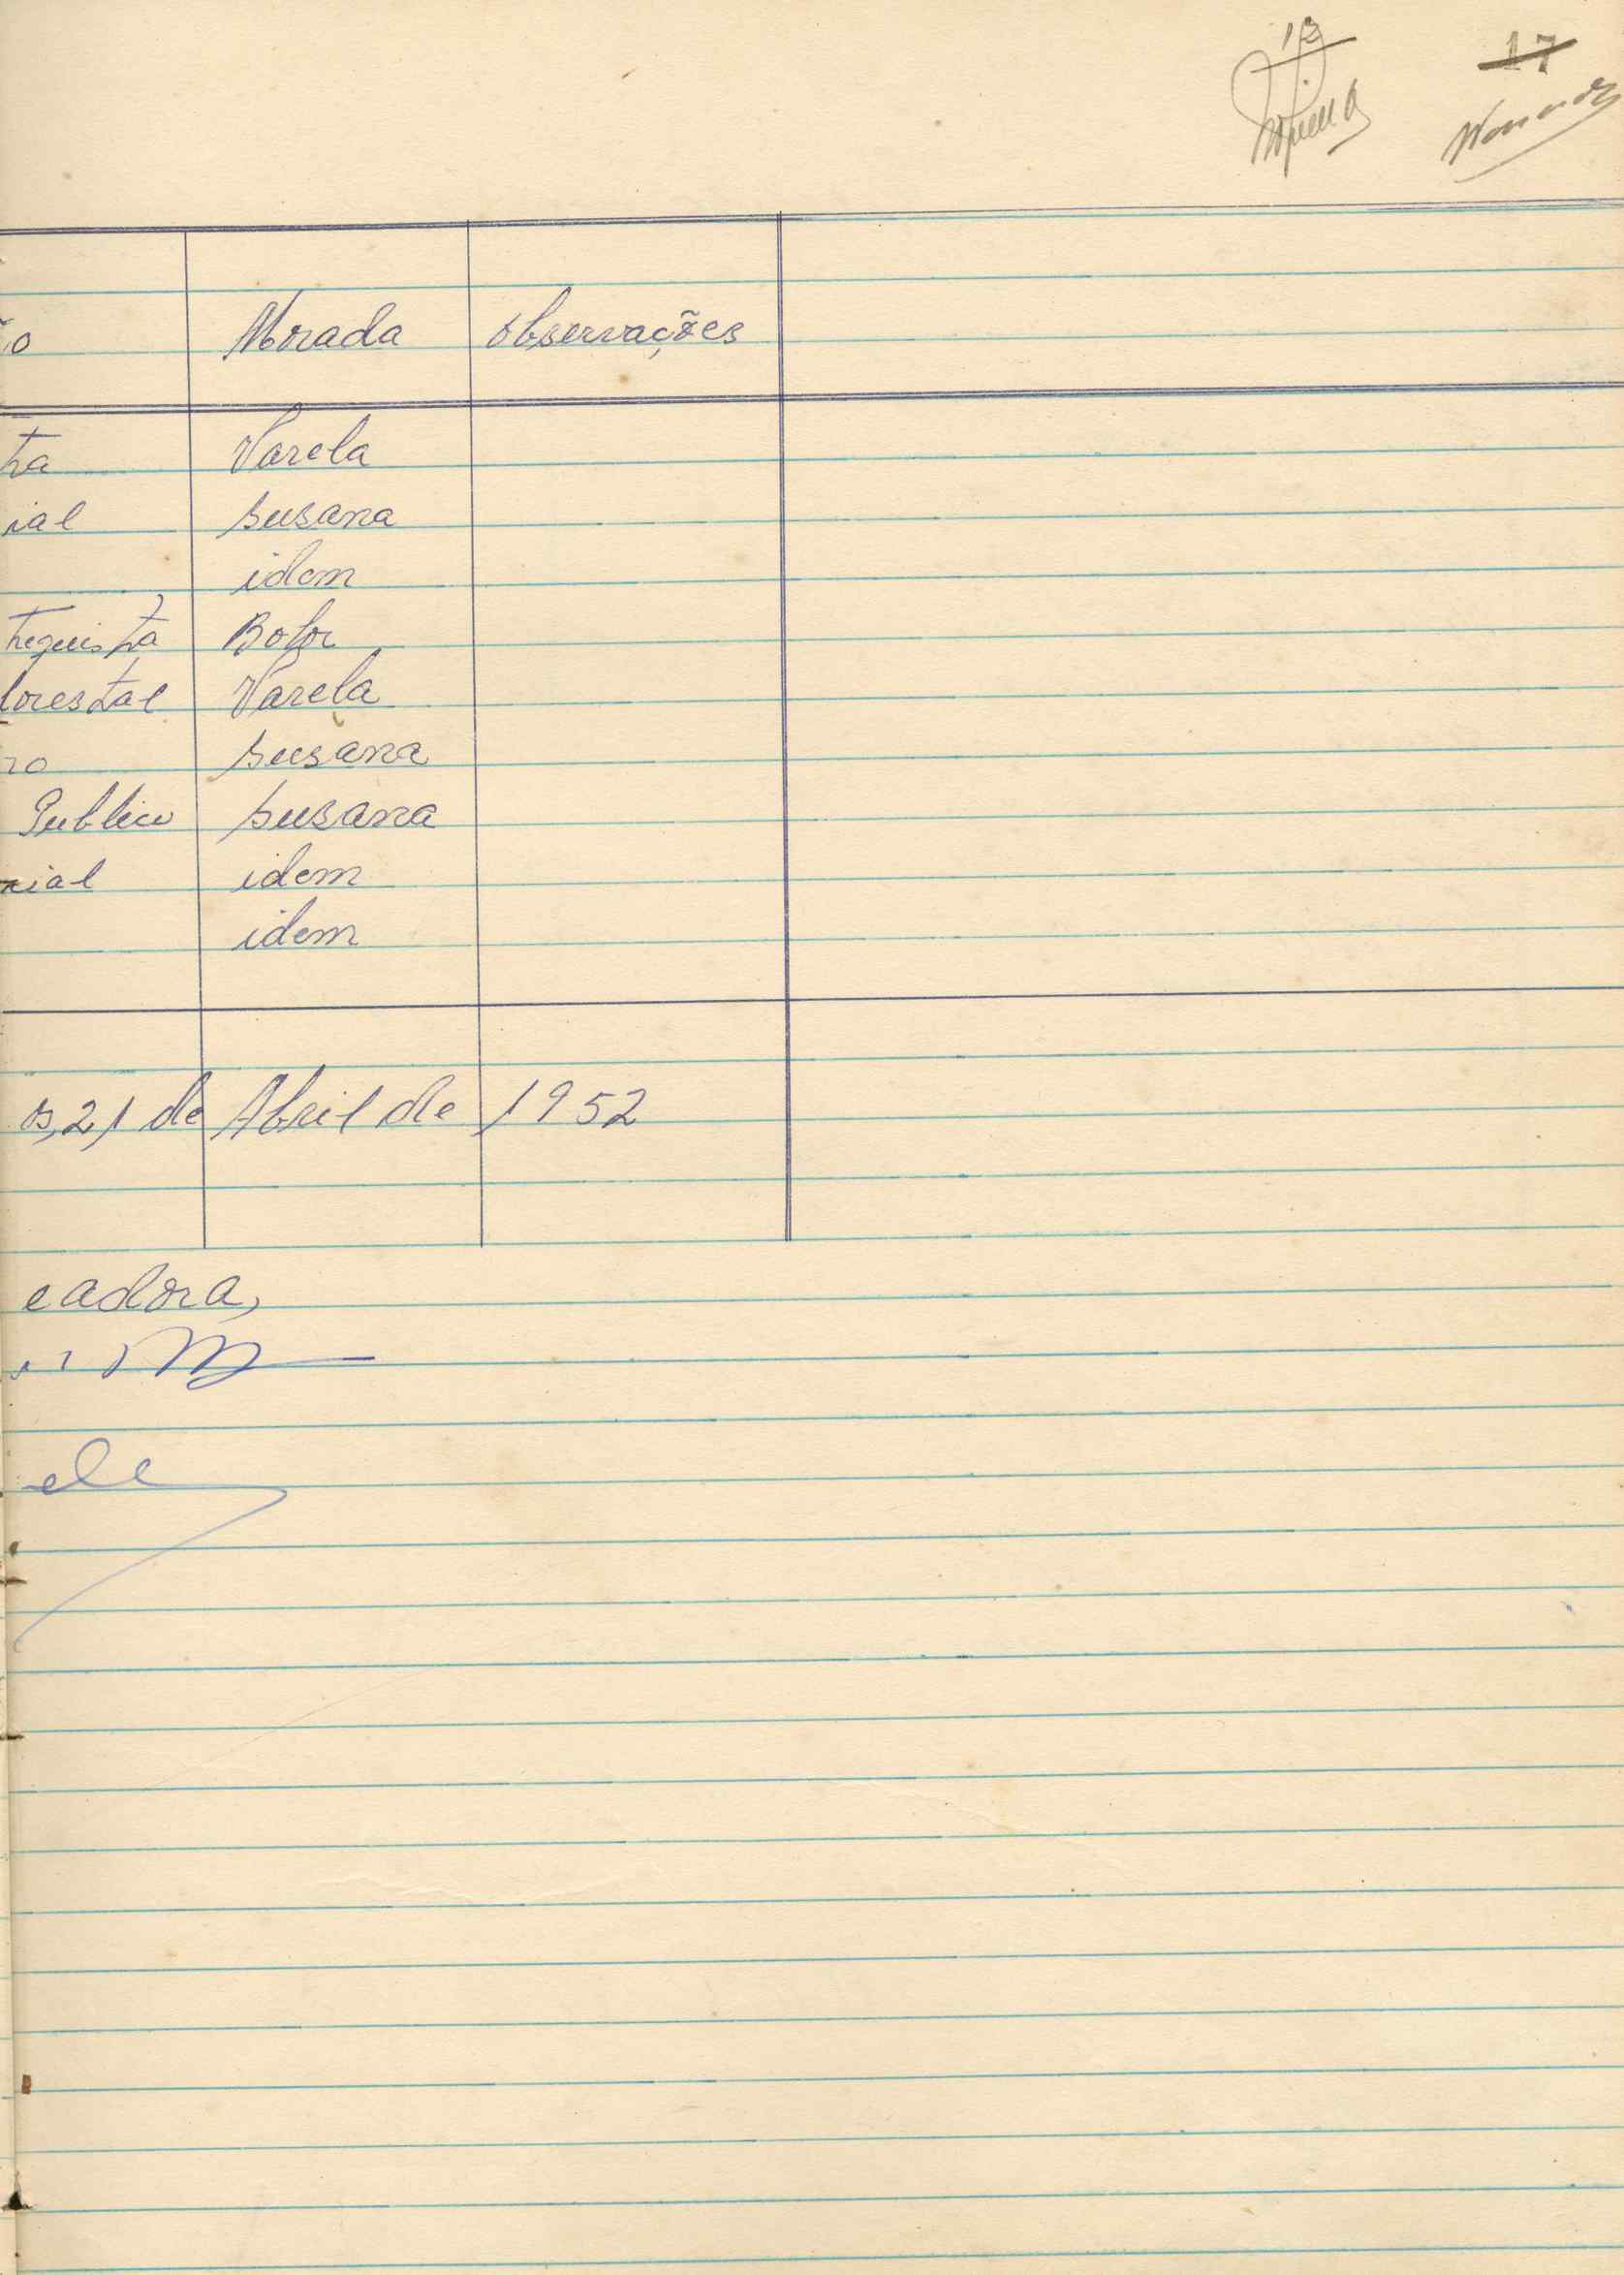 13
17
ão Morada Observações
ta Varela
ial Susana
idem
tequista Bolor
lorestal Varela
ro Susana
Publico Susana
cial idem
idem
os, 21 de Abril de 1952
eadora,